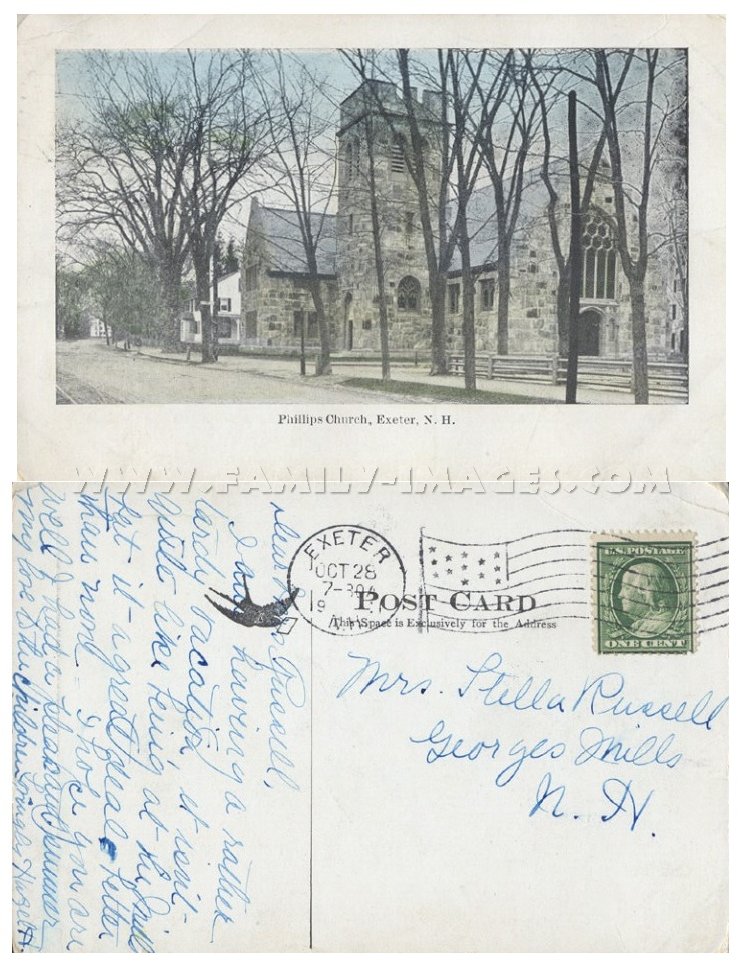 Phillips Church, Exeter, N. H.
WWW.FAMILY-IMAGES.COM
EXETER
OCT 28
7-30A
19
N.H.
POST CARD
This Space is Exclusively for the Address
U.S. POSTAGE
ONE CENT
Mrs. Stella Russell
Georges Mills
N. H.
Dear Mrs Russell,
I am having a rather
tardy vacation it isn't
quite like being at
but it a great deal better
than none I hope you are
well & had a pleasant summer
my love to the children